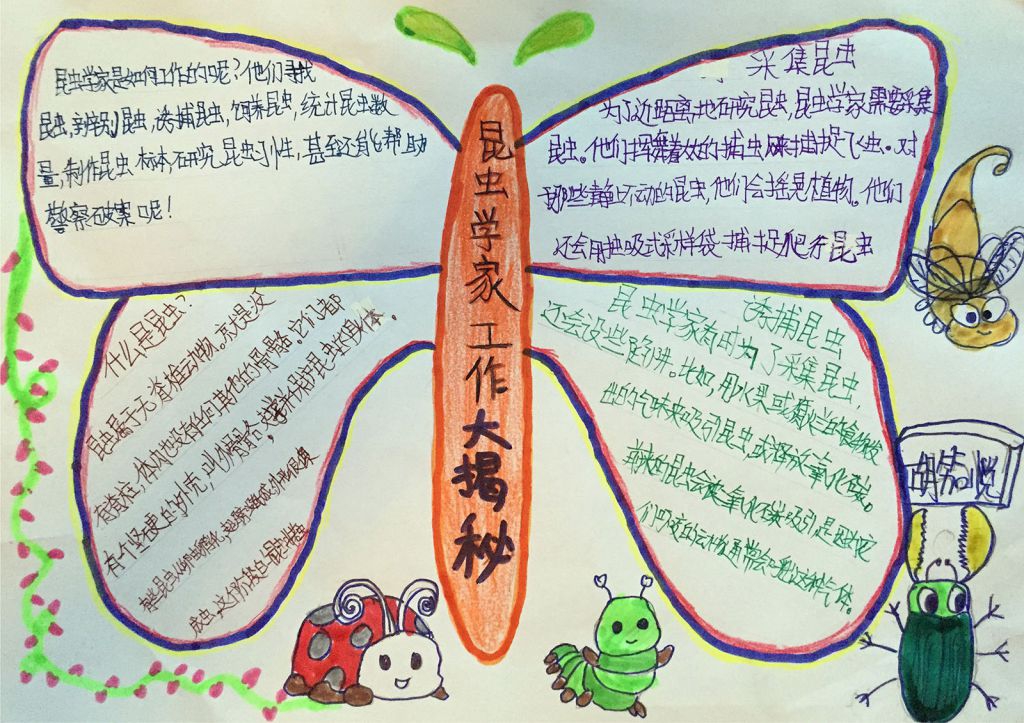 昆虫学家工作大揭秘
昆虫学家是如何工作的呢?他们寻找
昆虫,辨别昆虫,诱捕昆虫,饲养昆虫,统计昆虫数
量,制作昆虫标本,研究昆虫习性,甚至还能帮助
警察破案呢!
采集昆虫
为了近距离地研究昆虫,昆虫学家需要采集
昆虫。他们挥舞着
的捕虫网来捕捉飞虫。对
那些静止不动的昆虫,他们会摇晃植物。他们
还会用抽吸式采样袋捕捉爬行昆虫
什么是昆虫?
昆虫属于无脊椎动物。亦就是没
有脊柱,体内也没有任何其他的骨骼。它们都
有一个坚硬的外壳,叫外骨骼
保护昆虫的身体。
诱捕昆虫
昆虫学家有时为了采集昆虫,
还会设些陷阱。比如,用水果或腐烂的食物发
出的气味来吸引昆虫,或释放二氧化碳。
的昆虫会被二氧化碳吸引是因为它
们
通常会
这种气体。